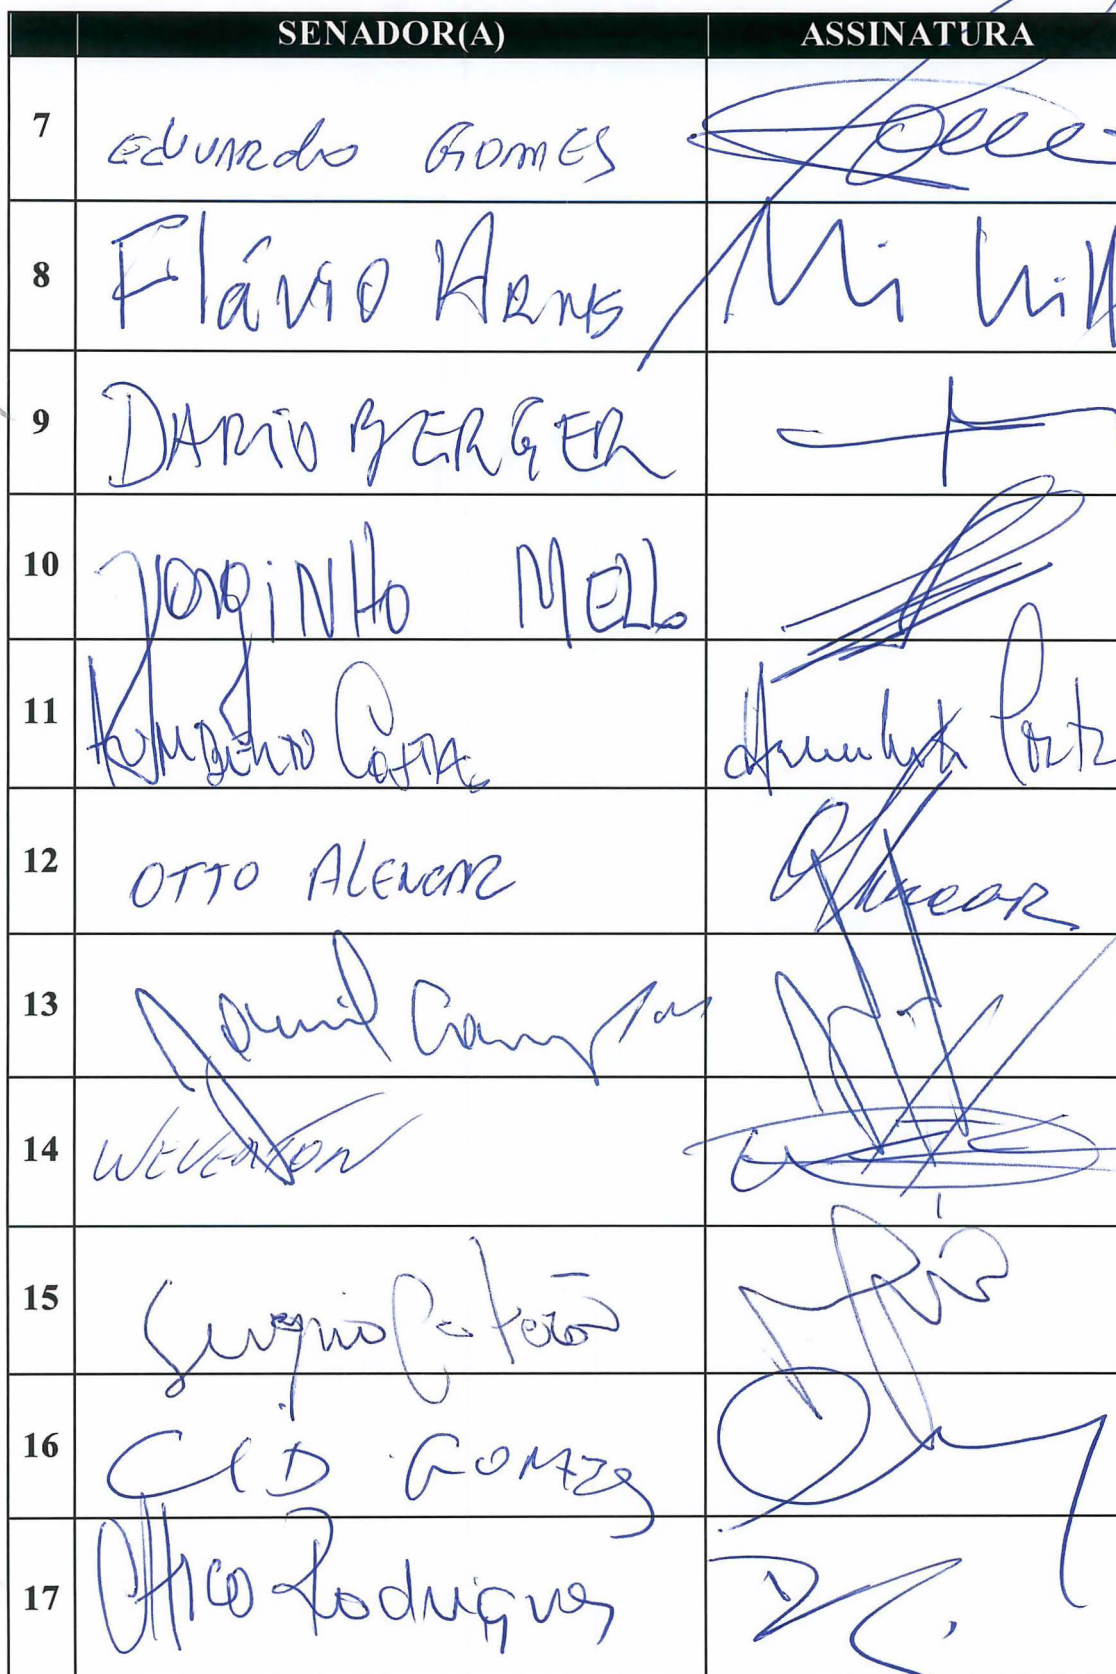 SENADOR(A) ASSINATURA
7 Eduardo Gomes
8 Flávio Arns
9 DARIO BERGER
10 JORGINHO MELLO
11 Humberto Costa Humberto Costa
12 OTTO ALENCAR Alencar
13 Jayme Campos
14 WEVERTON
15 Sergio Petecão
16 CID GOMES
17 CHICO Rodrigues